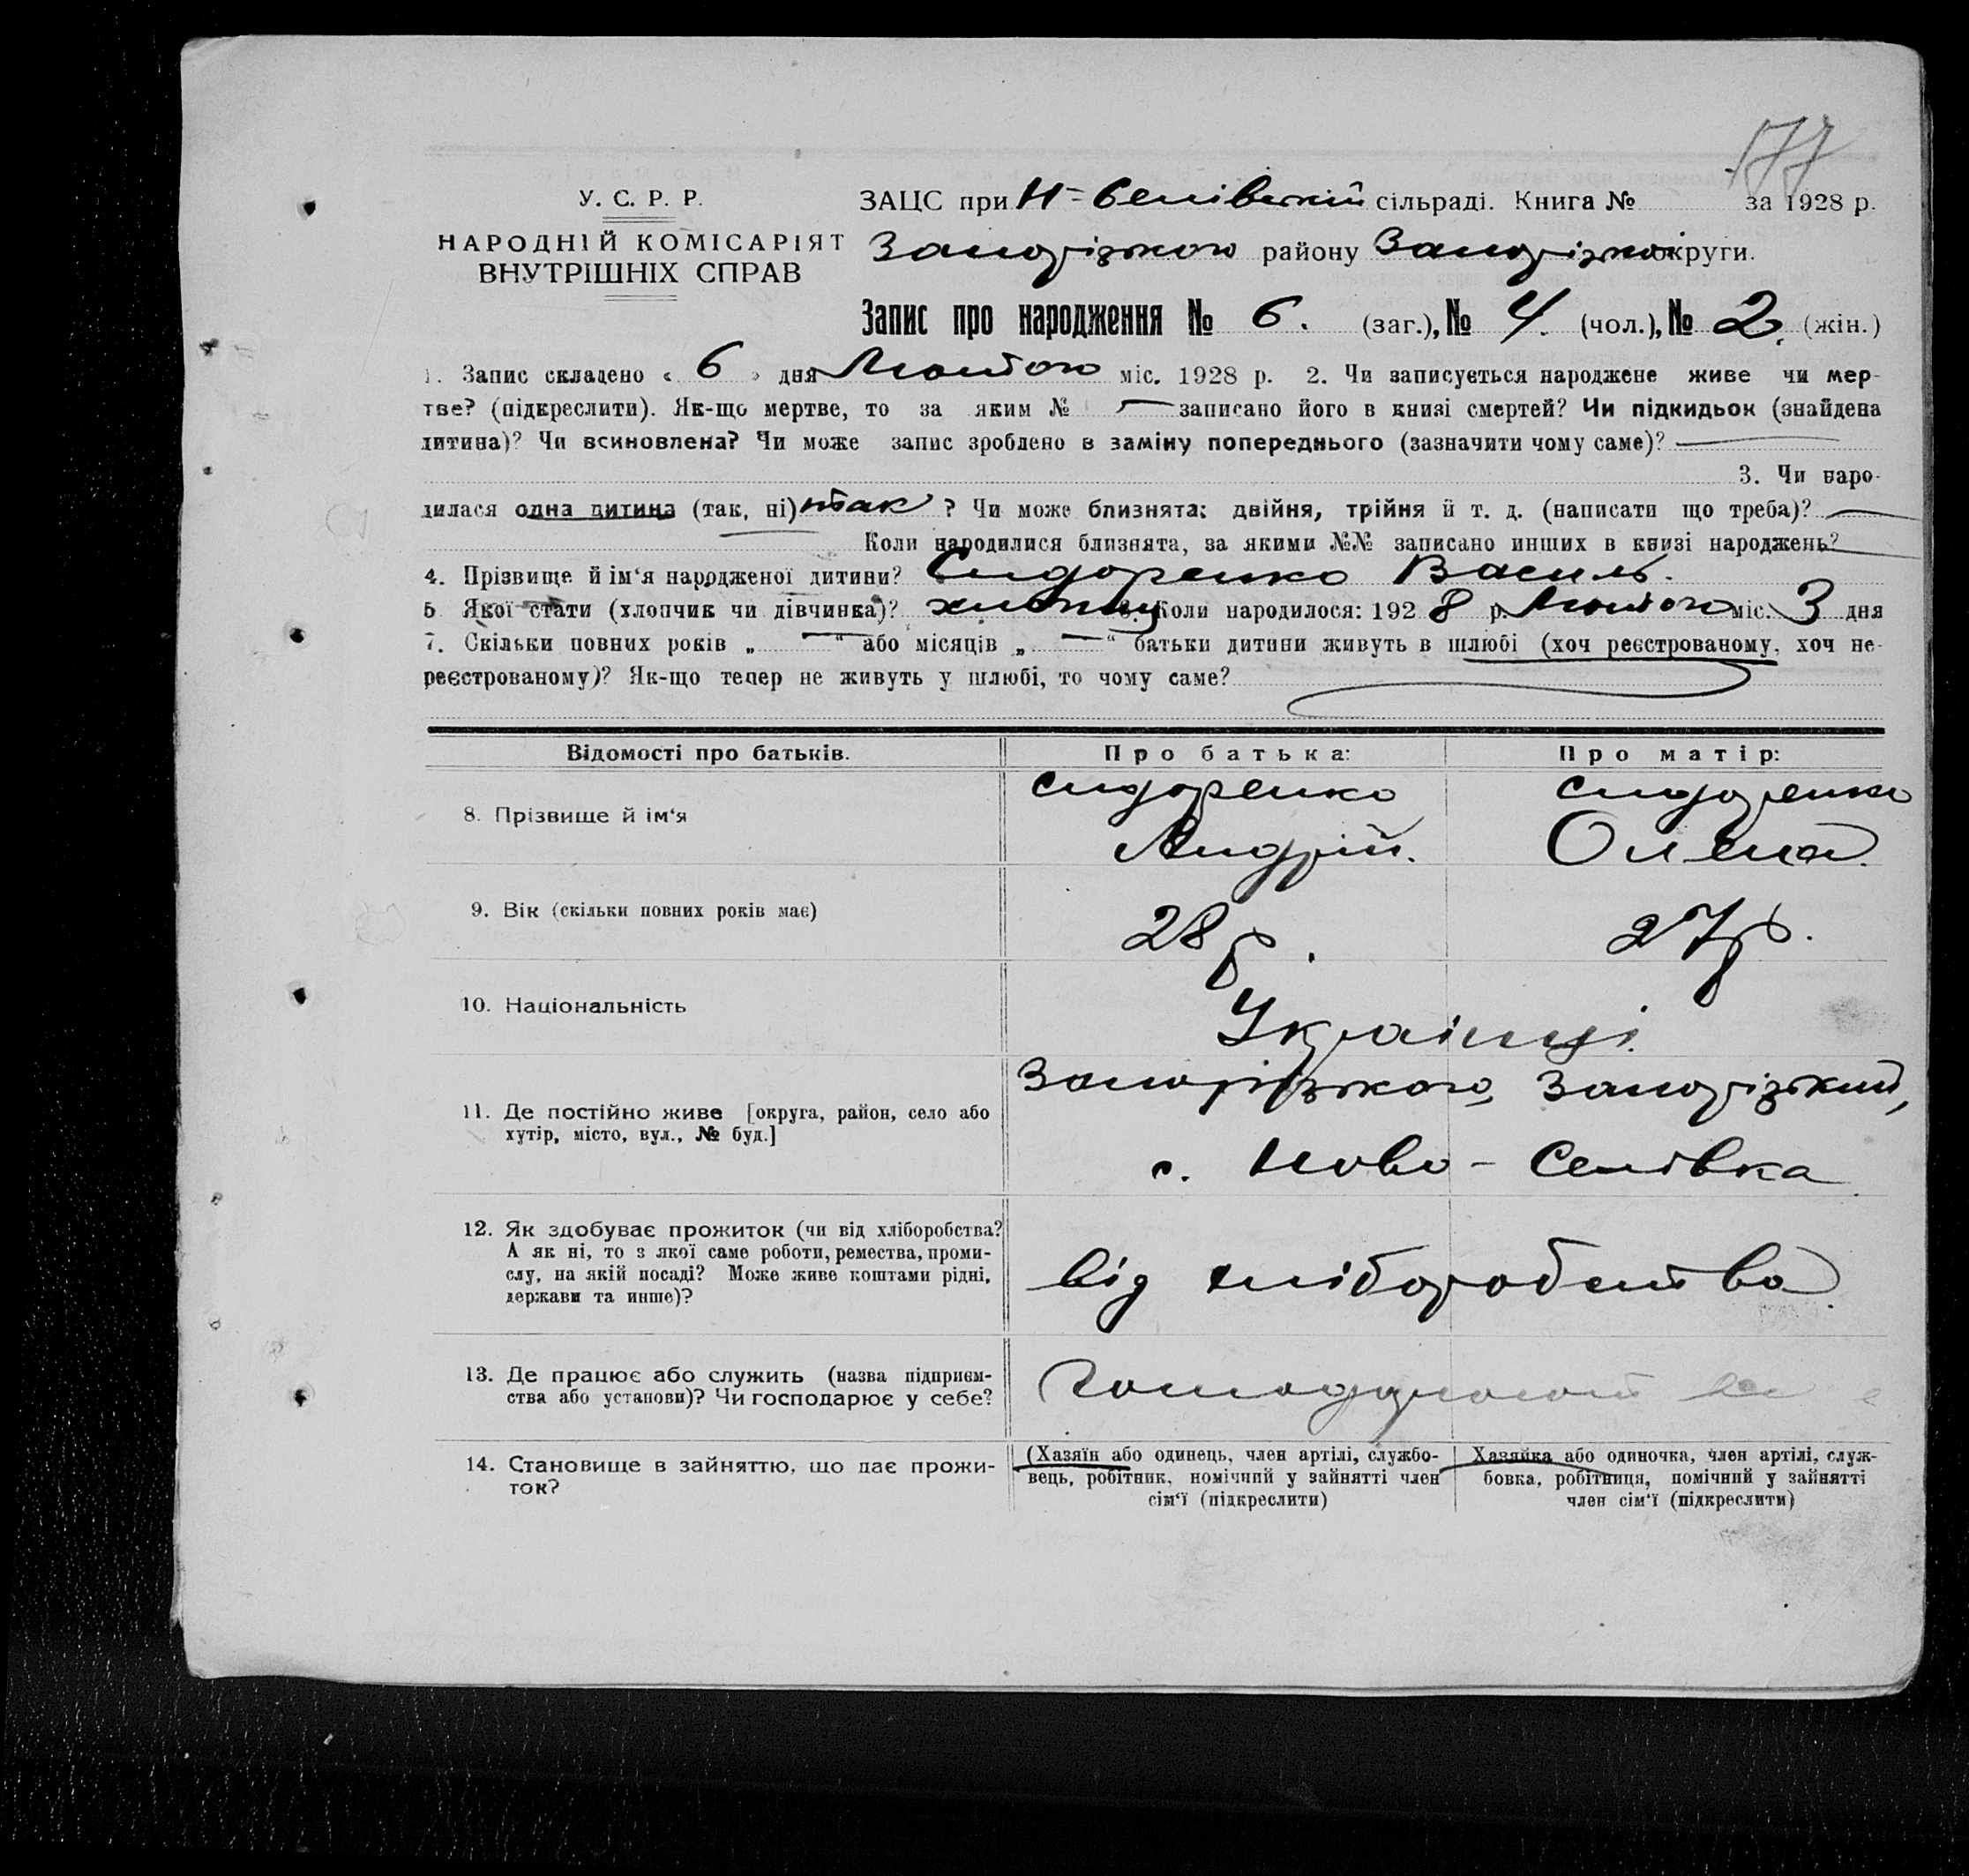 177
У. С. Р. Р.
НАРОДНІЙ КОМІСАРІЯТ
ВНУТРІШНІХ СПРАВ
ЗАЦС при Н-Селівській сільраді. Книга № за 1928 р.
Запорізького району Запорізької округи.
Запис про народження № 6. (заг.), № 4. (чол.), № 2. (жін.)
1. Запис складено « 6 » дня Лютого міс. 1928 р. 2. Чи записується народжене живе чи мер-
тве? (підкреслити). Як-що мертве, то за яким № — записано його в книзі смертей? Чи підкидьок (знайдена
дитина)? Чи всиновлена? Чи може запис зроблено в заміну попереднього (зазначити чому саме)? —
3. Чи наро-
дилася одна дитина (так, ні) так ? Чи може близнята: двійня, трійня й т. д. (написати що треба)? —
Коли народилися близнята, за якими №№ записано инших в книзі народжень? —
4. Прізвище й ім'я народженої дитини? Сидоренко Василь.
5 Якої стати (хлопчик чи дівчинка)? хлопчик 6. Коли народилося: 1928 р. Лютого міс. 3 дня
7. Скільки повних років „ — “ або місяців „ — “ батьки дитини живуть в шлюбі (хоч реєстрованому, хоч не-
реєстрованому)? Як-що тепер не живуть у шлюбі, то чому саме?
Відомості про батьків. Про батька: Про матір:
8. Прізвище й ім'я
Сидоренко Сидоренко
Андрій. Олена.
9. Вік (скільки повних років має) 28 р. 27 р.
10. Національність Українці.
11. Де постійно живе [округа, район, село або
хутір, місто, вул., № буд.]
Запорізького, Запорізький,
с. Ново-Селівка
12. Як здобуває прожиток (чи від хліборобства?
А як ні, то з якої саме роботи, ремества, проми-
слу, на якій посаді? Може живе коштами рідні,
держави та инше)?
від хліборобства.
13. Де працює або служить (назва підприєм-
ства або установи)? Чи господарює у себе?
14. Становище в зайняттю, що дає прожи-
ток?
(Хазяїн або одинець, член артілі, службо-
вець, робітник, помічний у зайнятті член
сім'ї (підкреслити)
Хазяйка або одиночка, член артілі, служ-
бовка, робітниця, помічний у зайнятті
член сім'ї (підкреслити)